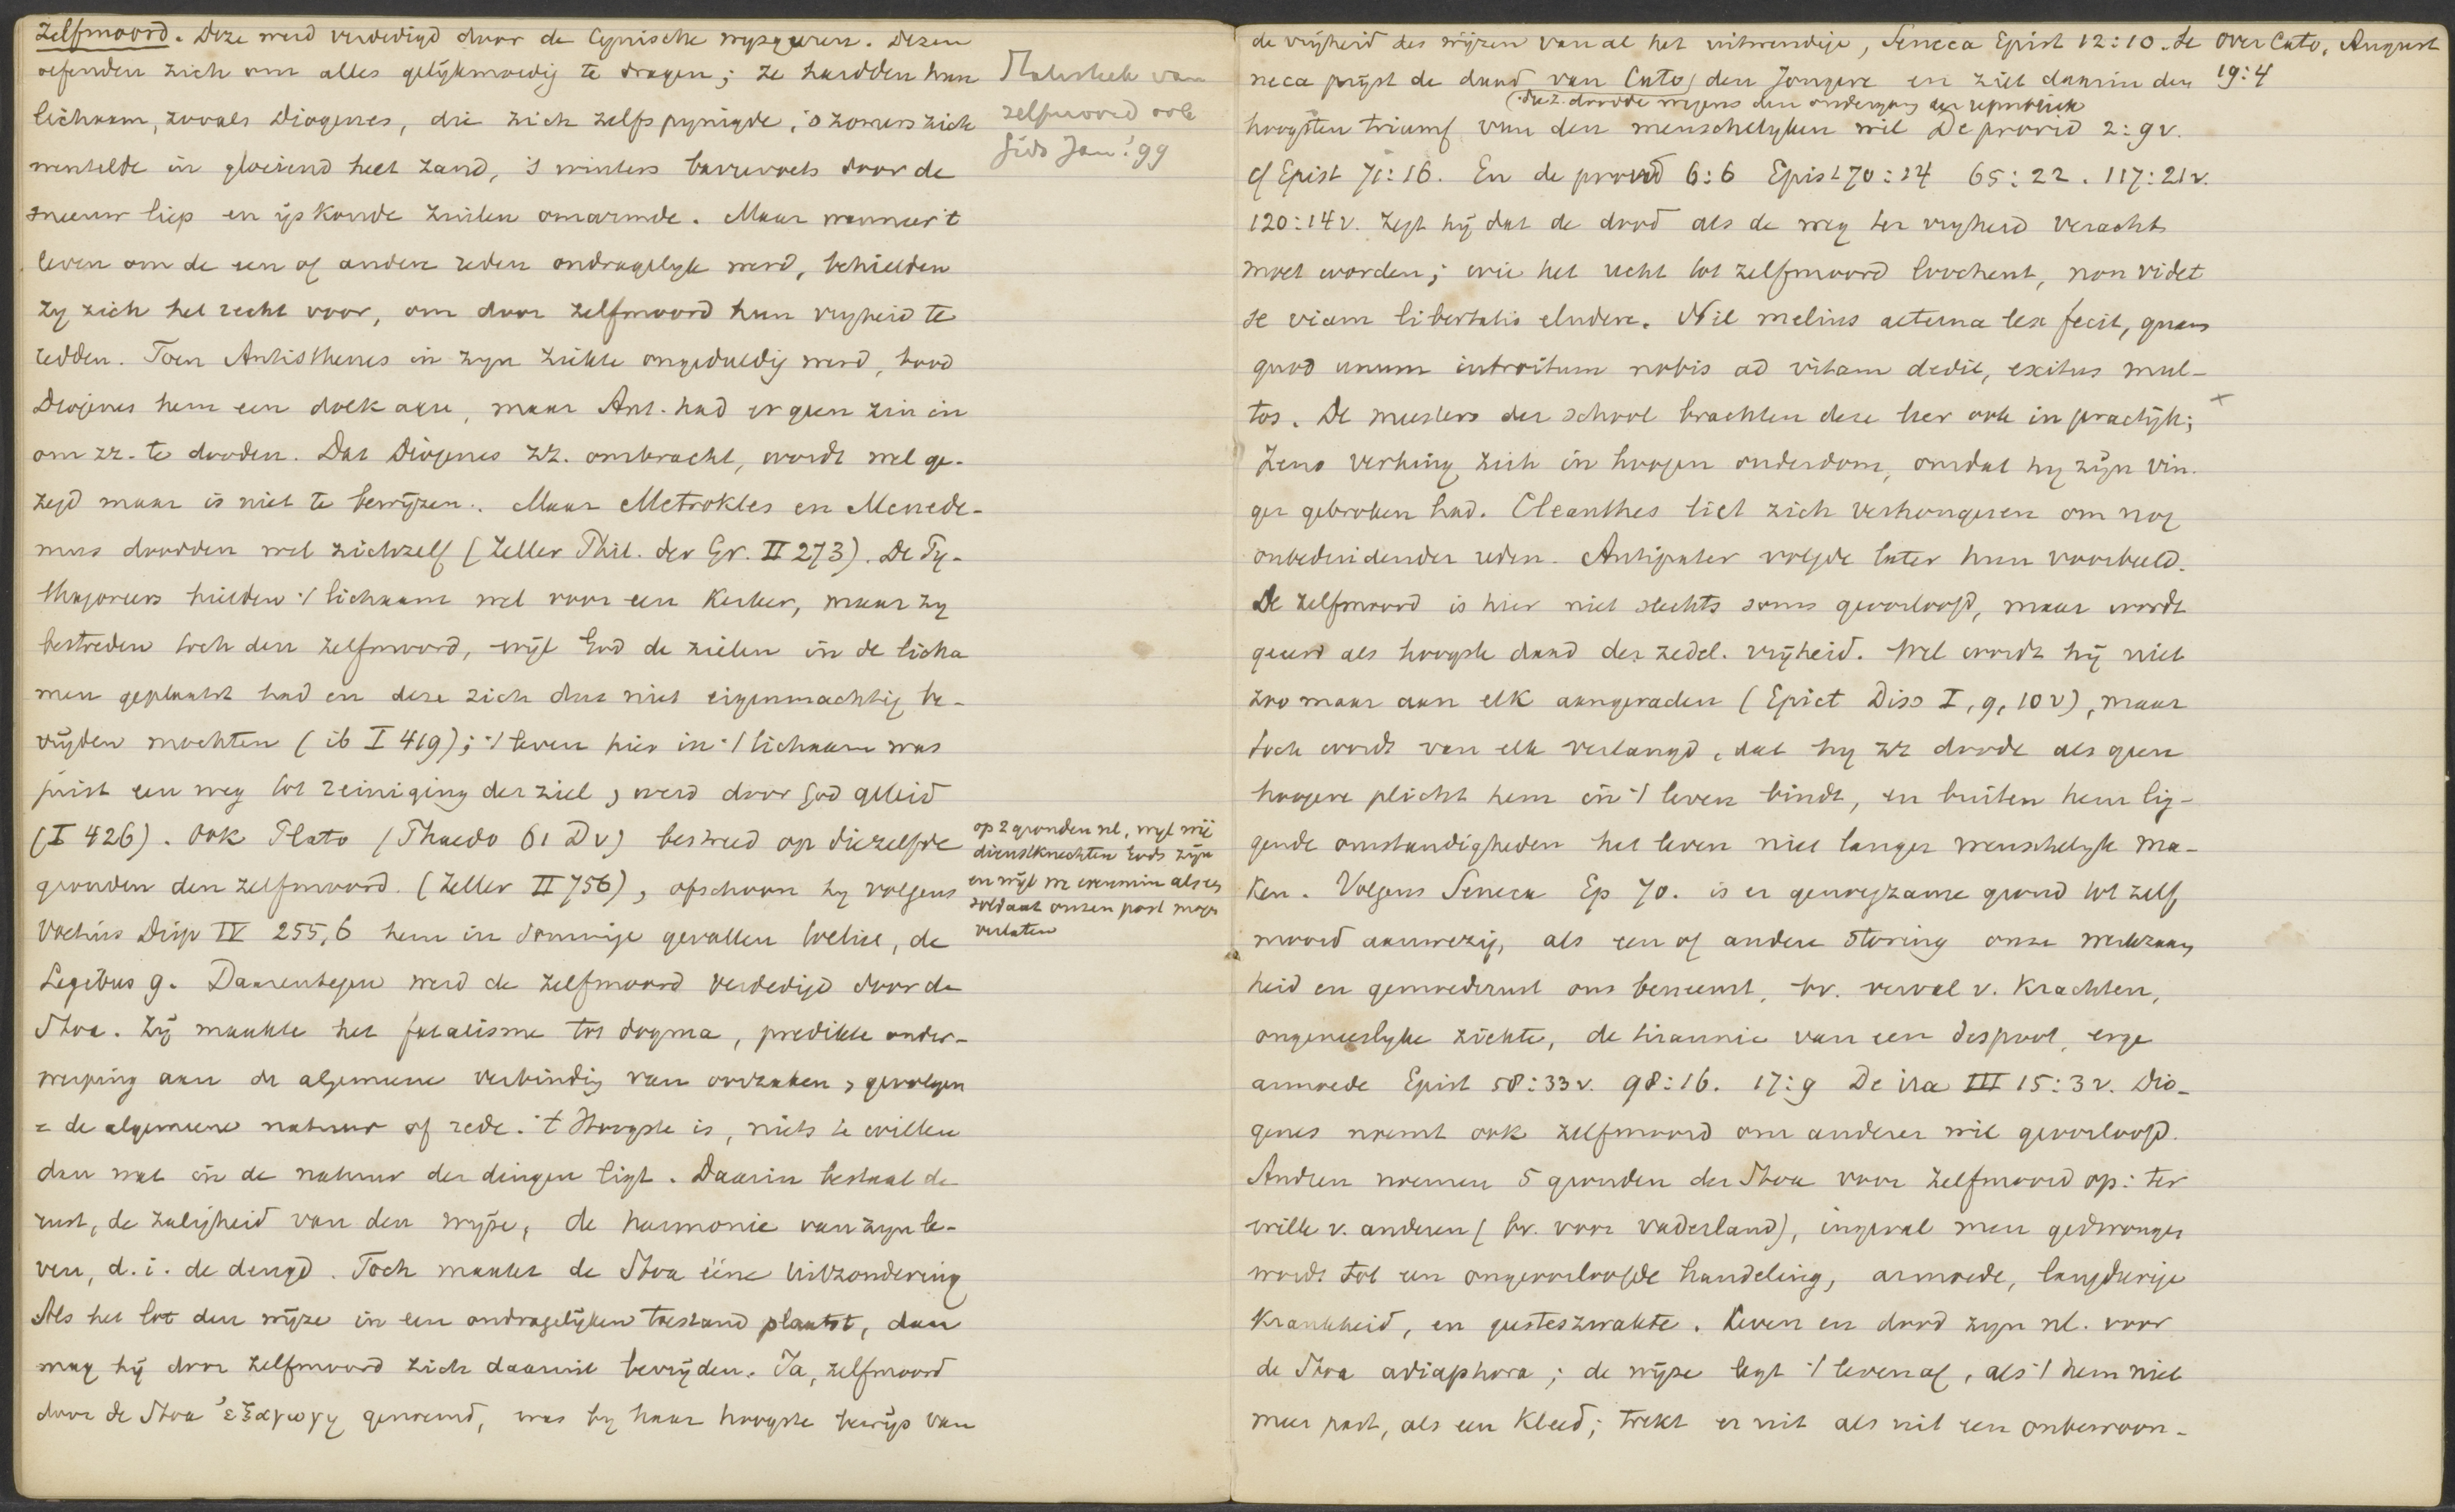 Zelfmoord. Deze werd verdedigd door de Cynische wysgeeren. Dezen
oefenden zich om alles gelijkmoedig te dragen; ze hardden hun
lichaam, zooals Diogenes, die zich zelfs pynigde, 's zomers zich
wentelde in gloeiend heet zand, 's winters barrevoets door de
sneeuw liep en ijskoude zuilen omarmde. Maar wanneer 't
leven om de een of andere reden ondragelyk werd, behielden
zy zich het recht voor, om door zelfmoord hun vryheid te
redden. Toen Antisthenes in zyn ziekte ongeduldig werd, bood
Diogenes hem een dolk aan, maar Ant. had er geen zin in
om zz. te dooden. Dat Diogenes zz. ombracht, wordt wel ge-
zegd maar is niet te bewijzen. Maar Metrokles en Menede-
mus doodden wel zichzelf (Zeller Phil. der Gr. II 273). De Py-
thagoreers hielden 't lichaam wel voor een kerker, maar zy
bestreden toch den zelfmoord, wijl God de zielen in de licha
men geplaatst had en deze zich dus niet eigenmachtig be-
vrijden mochten (ib I 419); 't leven hier in 't lichaam was
juist een weg tot reiniging der ziel, werd door God geleid
(I 426). Ook Plato (Phaedo 61 D v) bestreed op diezelfde
gronden den zelfmoord. (Zeller II 756), ofschoon hy volgens
Voetius Disp IV 255,6 hem in sommige gevallen toeliet, de
Legibus 9. Daarentegen werd de zelfmoord verdedigd door de
Stoa. Zij maakte het fatalisme tot dogma, predikte onder-
werping aan de algemeene verbinding van oorzaken, gevolgen
= de algemeene natuur of rede. 't Hoogste is, niets te willen
dan wat in de natuur der dingen ligt. Daarin bestaat de
rust, de zaligheid van den wijze, de harmonie van zyn le-
ven, d.i. de deugd. Toch maakt de Stoa ééne uitzondering
Als het lot den wijze in een ondragelijken toestand plaatst, dan
mag hij door zelfmoord zich daaruit bevrijden. Ja, zelfmoord
door de Stoa ἐξαγωγη genoemd, was by haar hoogste bewijs van
Statistiek van
zelfmoord ook
Gids Jan. '99
op 2 gronden nl, wyl wij
dienstknechten Gods zijn
en wijl we evenmin als een
soldaat onzen post mogen
verlaten
de vrijheid des wijzen van al het uitwendige, Seneca Epist 12:10. Se
neca prijst de daad van Cato, den Jongere en ziet daarin den
(die z. doodde wegens den ondergang der republiek
hoogsten triumf van den menschelyken wil De provid 2:9v.
cf Epist 71:16. En de provid 6:6 Epist 70:24 65:22. 117:21v.
120:14v. zegt hij dat de dood als de weg ter vryheid veracht
moet worden; wie het recht tot zelfmoord loochent, non videt
se viam libertatis eludere. Nil melius aeterna lex fecit, quam
quod unum introitum nobis ad vitam dedit, exitus mul-
tos. De meesters der school brachten deze leer ook in practijk;
Zeno verhing zich in hoogen ouderdom, omdat hy zijn vin-
ger gebroken had. Cleanthes liet zich verhongeren om nog
onbeduidender reden. Antipater volgde later hun voorbeeld.
De zelfmoord is hier niet slechts soms geoorloofd, maar wordt
geeerd als hoogste daad der zedel. vrijheid. Wel wordt hij niet
zoo maar aan elk aangeraden (Epict Diss I, 9, 10v), maar
toch wordt van elk verlangd, dat hy zz doode als geen
hoogere plicht hem in 't leven bindt, en buiten hem lig-
gende omstandigheden het leven niet langer menschelyk ma-
ken. Volgens Seneca Ep 70. is er genoegzame grond tot zelf
moord aanwezig, als een of andere storing onze werkzaam
heid en gemoedsrust ons beneemt, bv. verval v. krachten,
ongeneeslyke ziekte, de tirannie van een despoot, erge
armoede Epist 58:33v. 98:16. 17:9 De ira III 15:3v. Dio-
genes noemt ook zelfmoord om anderer wil geoorloofd.
Andren noemen 5 gronden der Stoa voor zelfmoord op: ter
wille v. anderen (bv. voor vaderland), ingeval men gedwongen
wordt tot een ongeoorloofde handeling, armoede, langdurige
krankheid, en geesteszwakte. Leven en dood zyn nl. voor
de Stoa adiaphora; de wijze legt 't leven af, als 't hem niet
meer past, als een kleed; trekt er uit als uit een onbewoon-
Over Cato, August
19:4
x